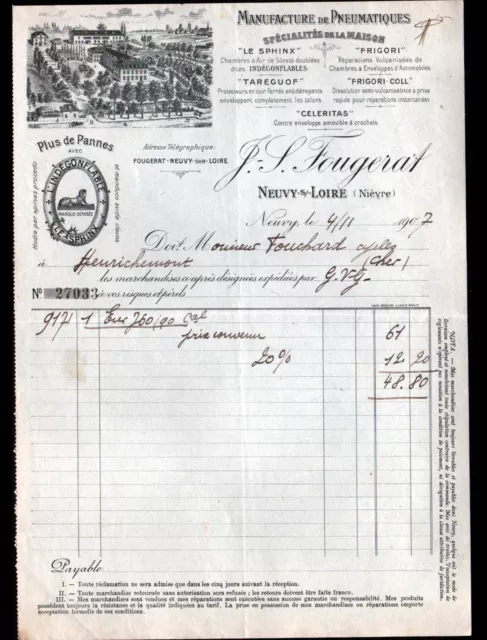 MANUFACTURE DE PNEUMATIQUES
SPÉCIALITÉS DE LA MAISON
"LE SPHINX"
Chambres à Air de Sûreté doublées
dites INDÉGONFLABLES
"TAREGUOF"
Protecteurs en cuir ferrés antidérapants
enveloppant complètement les talons
"FRIGORI"
Réparations Vulcanisées de
Chambres & Enveloppes d'Automobiles
"FRIGORI-COLL"
Dissolution semi-vulcanisatrice à prise
rapide pour réparations instantanées
"CELERITAS"
Contre enveloppe amovible à crochets
Plus de Pannes
AVEC
L'INDÉGONFLABLE
MARQUE DÉPOSÉE
LE SPHINX
Adresse Télégraphique:
FOUGERAT-NEUVY-SUR-LOIRE
J.-S. Fougerat
NEUVY-S/-LOIRE (Nièvre)
Neuvy, le 4/11 1907
Doit Monsieur Fouchard cycles
à Henrichemont (Cher)
les marchandises ci-après désignées expédiées par G.V.G.
N° 27033 à vos risques et périls
9171 1 Env 760/90 Cal
prix convenu 61
20% 12.20
48.80
NOTA. — Mes marchandises sont toujours
Payable
I. — Toute réclamation ne sera admise que dans les cinq jours suivant la réception.
II. — Toute marchandise retournée sans autorisation sera refusée ; les retours doivent être faits franco.
III. — Mes marchandises sont vendues et mes réparations exécutées sans aucune garantie ou responsabilité. Mes tarifs
possèdent toujours la résistance et la qualité indiquées au tarif. La prise en possession de mes marchandises ou réparations emporte
acceptation formelle de ces conditions.